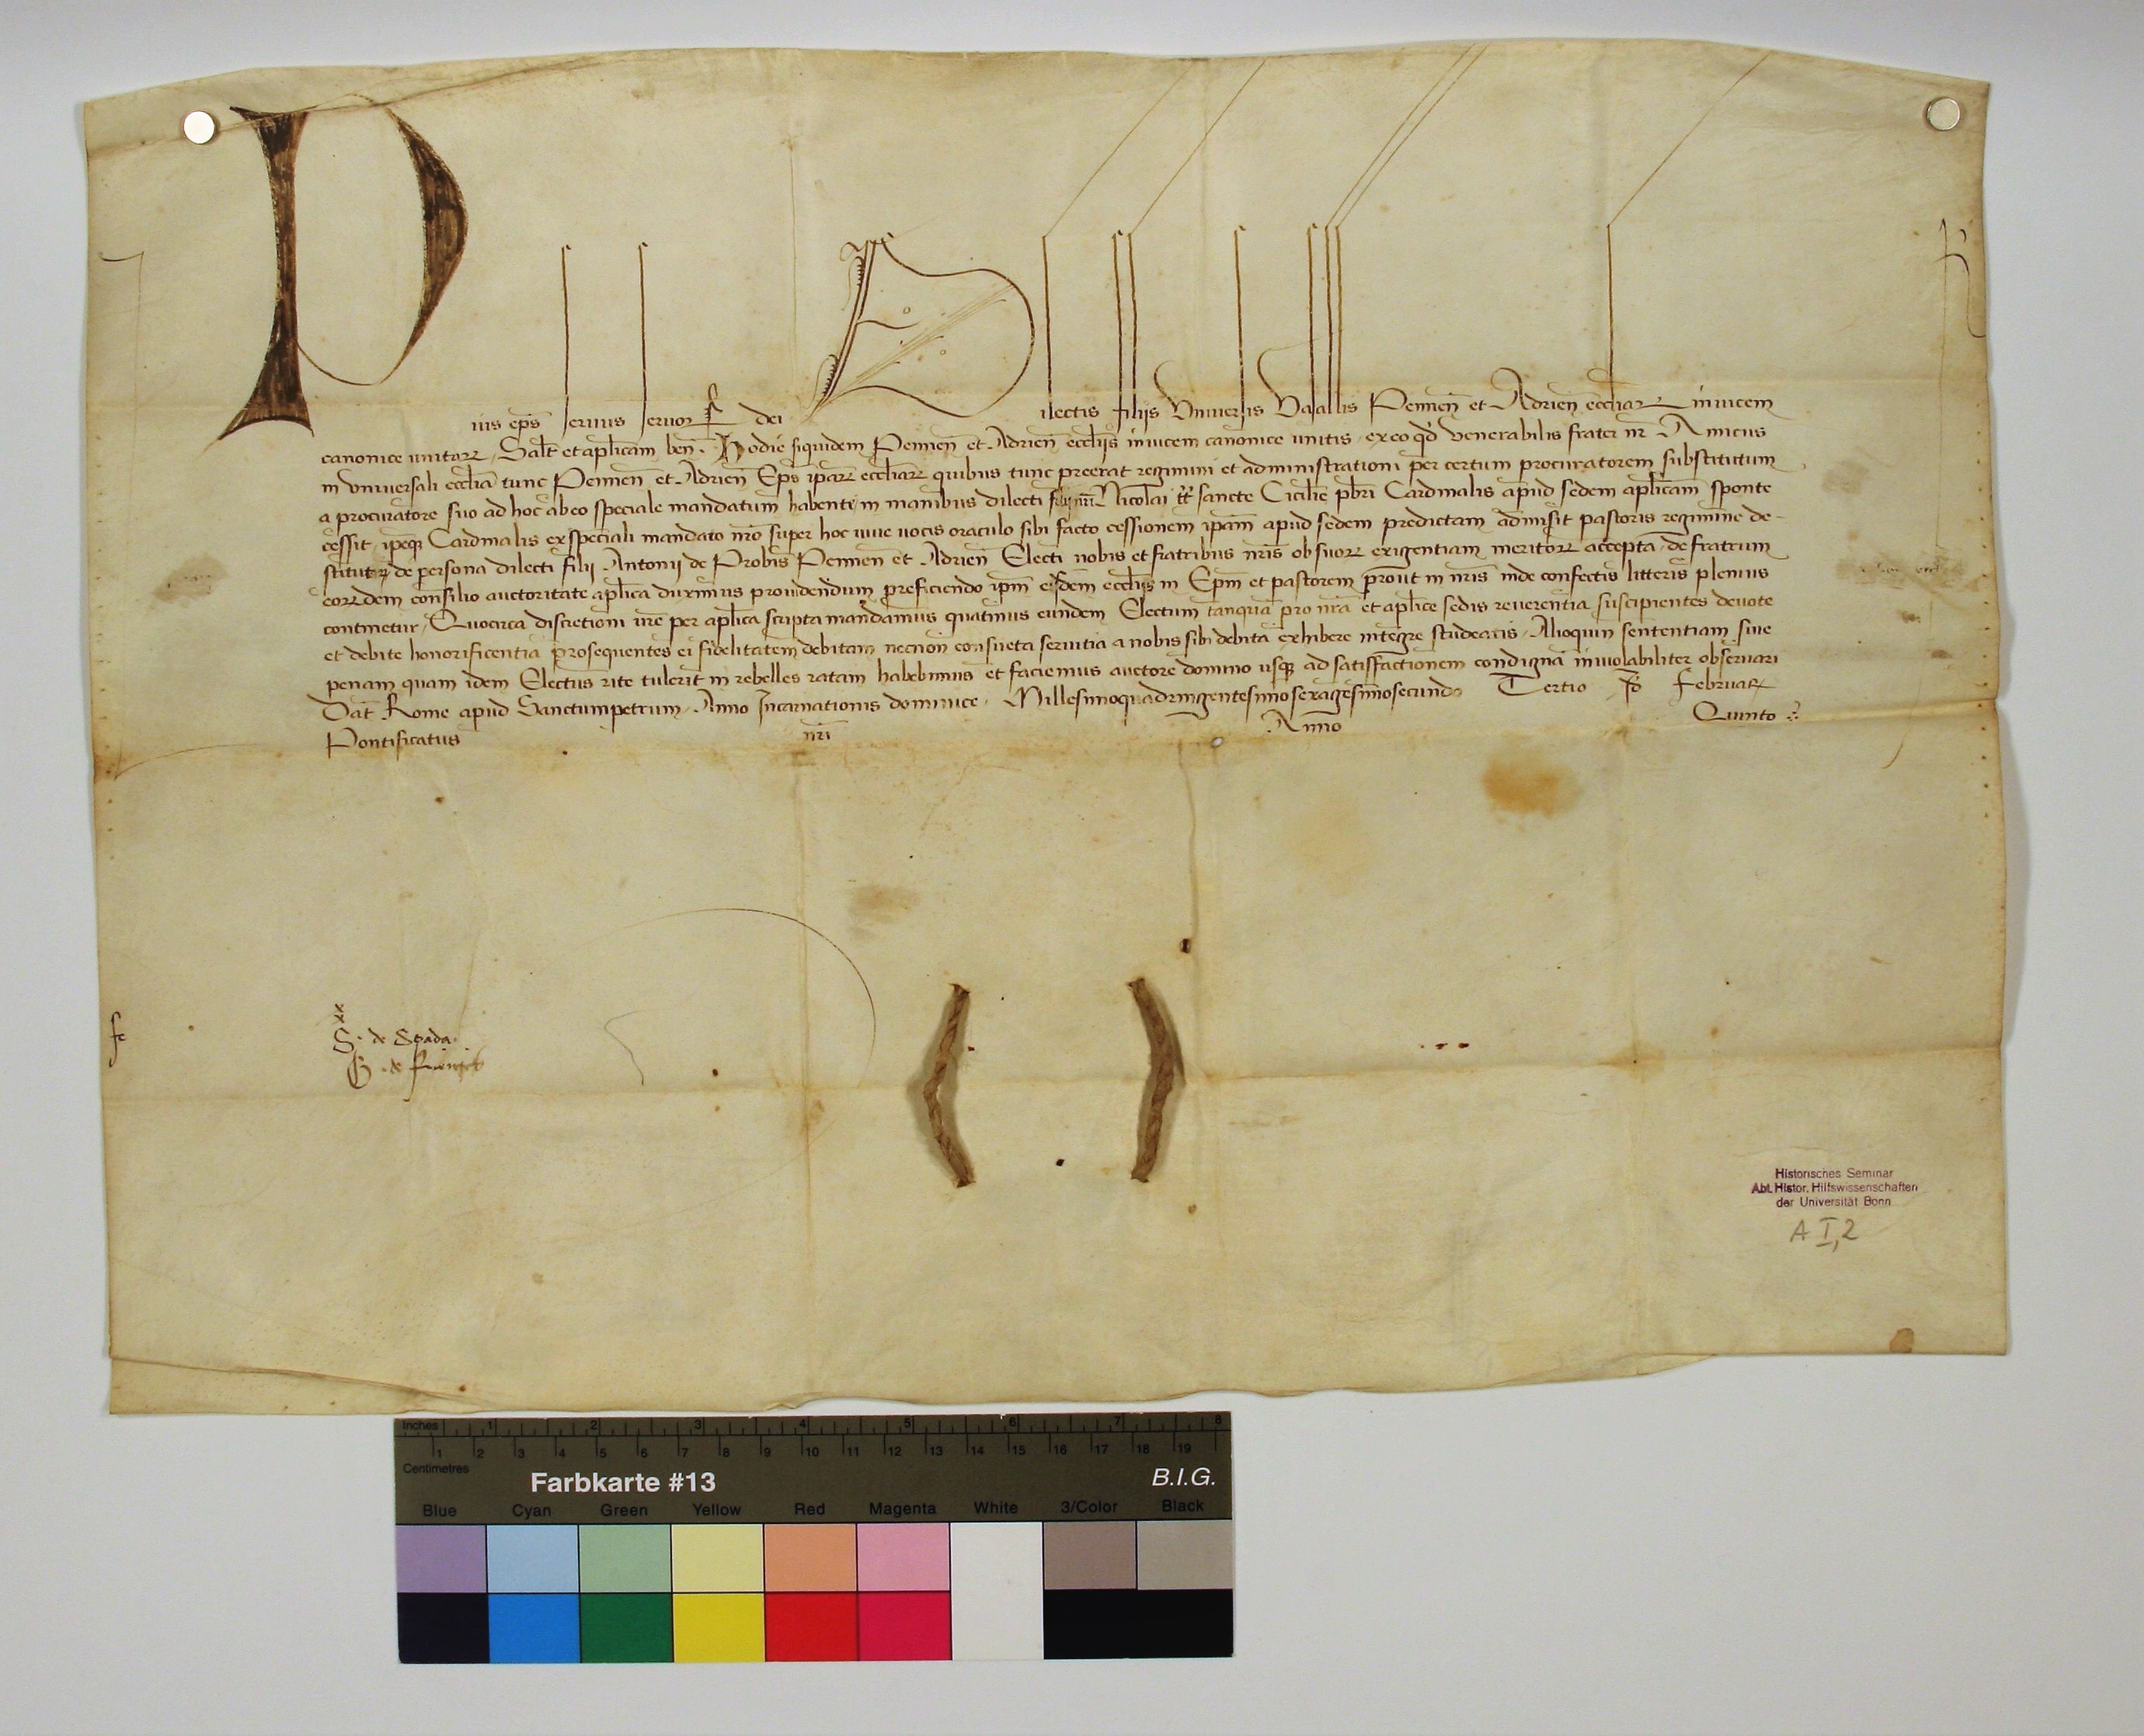 Pius ep̄s seruus seruoꝝ dei Dilectis filijs Vniuersis Vasallis Pennen̄ et Adrien̄ eccl̄iaꝝ inuicem
canonice unitaꝝ Salt̄ et ap̄licam ben̄. Hodie siquidem Pennen̄ et Adrien̄ eccl̄ijs inuicem canonice unitis ex eo qd̄ venerabilis frater nr̄ Amicus
in vniuersali eccl̄ia tunc Pennen̄ et Adrien̄ Ep̄s ip̄aꝝ eccl̄iaꝝ quibus tunc preerat regimini et administrationi per certum procuratorem substitutum
a procuratore suo ad hoc ab eo speciale mandatum habente in manibus dilecti filij nr̄i Nicolai tt̄ sancte Cicilie pbr̄i Cardinalis apud sedem ap̄licam sponte
cessit ip̄eqꝫ Cardinalis ex speciali mandato nr̄o super hoc uiue uocis oraculo sibi facto cessionem ip̄am apud sedem predictam admisit pastoris regimine de-
stitutis de persona dilecti filij Antonij de Probis Pennen̄ et Adrien̄ Electi nobis et fratribus nr̄is ob suoꝝ exigentiam meritoꝝ accepta de fratrum
eoꝝdem consilio auctoritate ap̄lica duximus prouidendum preficiendo ip̄m eisdem eccl̄ijs in Ep̄m et pastorem prout in nr̄is inde confectis litteris plenius
continetur Quocirca discretioni ur̄e per ap̄lica scripta mandamus quatinus eundem Electum tanquā pro nr̄a et ap̄lice sedis reuerentia suscipientes deuote
et debite honorificentia prosequentes ei fidelitatem debitam necnon consueta seruitia a nobis sibi debita exhibere integre studeatis Alioquin sententiam siue
penam quam idem Electus rite tulerit in rebelles ratam habebimus et faciemus auctore domino usqꝫ ad satisfactionem condignā inuiolabiliter obseruari
Dat̄ Rome apud Sanctumpetrum Anno Incarnationis dominice Millesimoquadringentesimosexagesimosecundo Tertio Id̄ Februaꝝ
Pontificatus nr̄i Anno Quinto
x
x
S. de Spada.
G. de
Historisches Seminar
Abt. Histor. Hilfswissenschaften
der Universität Bonn
A I,2
Inches 1 2 3 4 5 6 7 8
1 2 3 4 5 6 7 8 9 10 11 12 13 14 15 16 17 18 19
Centimetres
Farbkarte #13 B.I.G.
Blue Cyan Green Yellow Red Magenta White 3/Color Black